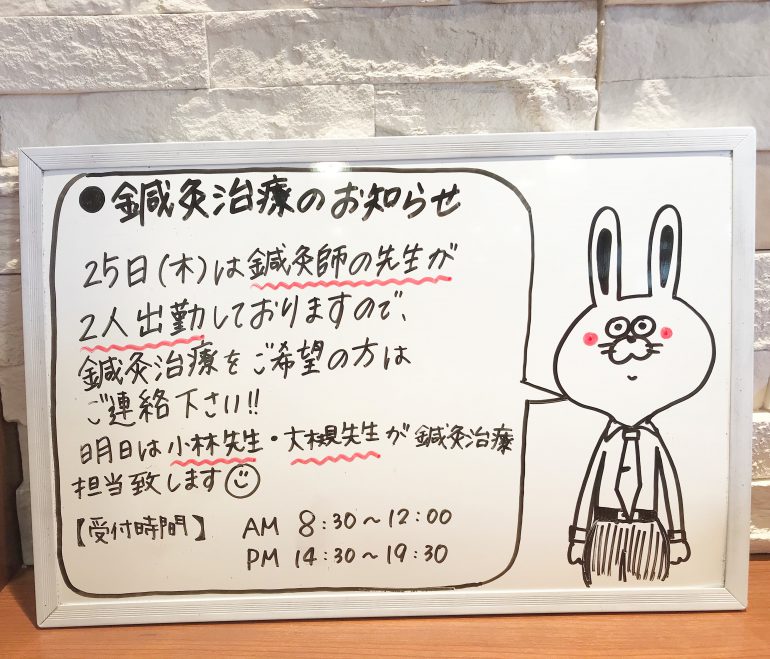 ●鍼灸治療のお知らせ
25日(木)は鍼灸師の先生が
2人出勤しておりますので、
鍼灸治療をご希望の方は
ご連絡下さい!!
明日は小林先生・大槻先生が鍼灸治療
担当致します
【受付時間】 AM 8:30〜12:00
PM 14:30〜19:30